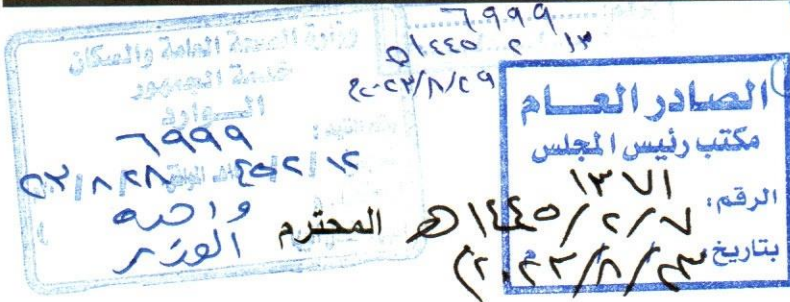 ٦٩٩٩
١٣ ٢ ١٤٤٥هـ
٢٠٢٣/٨/٢٩
وزارة الصحة العامة والسكان
خدمة الجمهور
الوارد
٦٩٩٩
١٢ ٢ ٤٥ الموافق ٢٨ ٨ ٢٣
واحدة
الوزير
الصادر العام
مكتب رئيس المجلس
الرقم: ١٣٧١
بتاريخ: ١٤٤٥/٢/٧هـ
٢٠٢٣/٨/٢٣م
المحترم